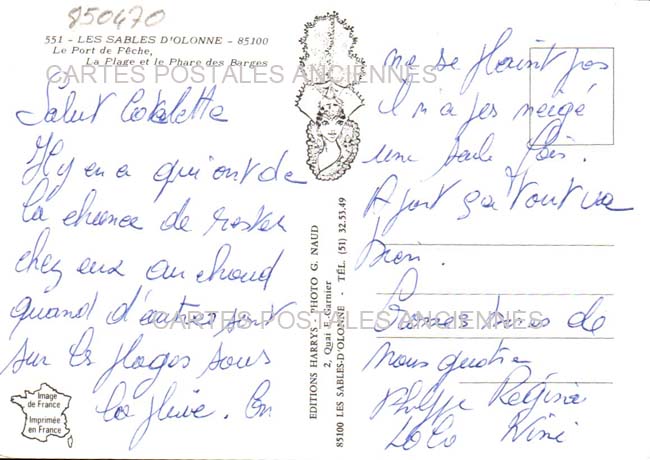 850470
551 - LES SABLES D'OLONNE - 85100
Le Port de Pêche,
La Plage et le Phare des Barges
CARTES POSTALES ANCIENNES
Salut
Il y en a qui ont de
la chance de rester
chez eux au chaud
quand d'autres sont
sur les plages sous
la pluie. On
ne se plaint pas
il n'a pas neigé
une seule fois.
A part ça tout va
bien.
Grosses bises de
nous quatre
Philippe Régina
Lolo Nini
CARTES POSTALES ANCIENNES
EDITIONS HARRYS - PHOTO G. NAUD
2, Quai E. Garnier
85100 LES SABLES-D'OLONNE - TÉL. (51) 32.53.49
Image
de France
Imprimée
en France